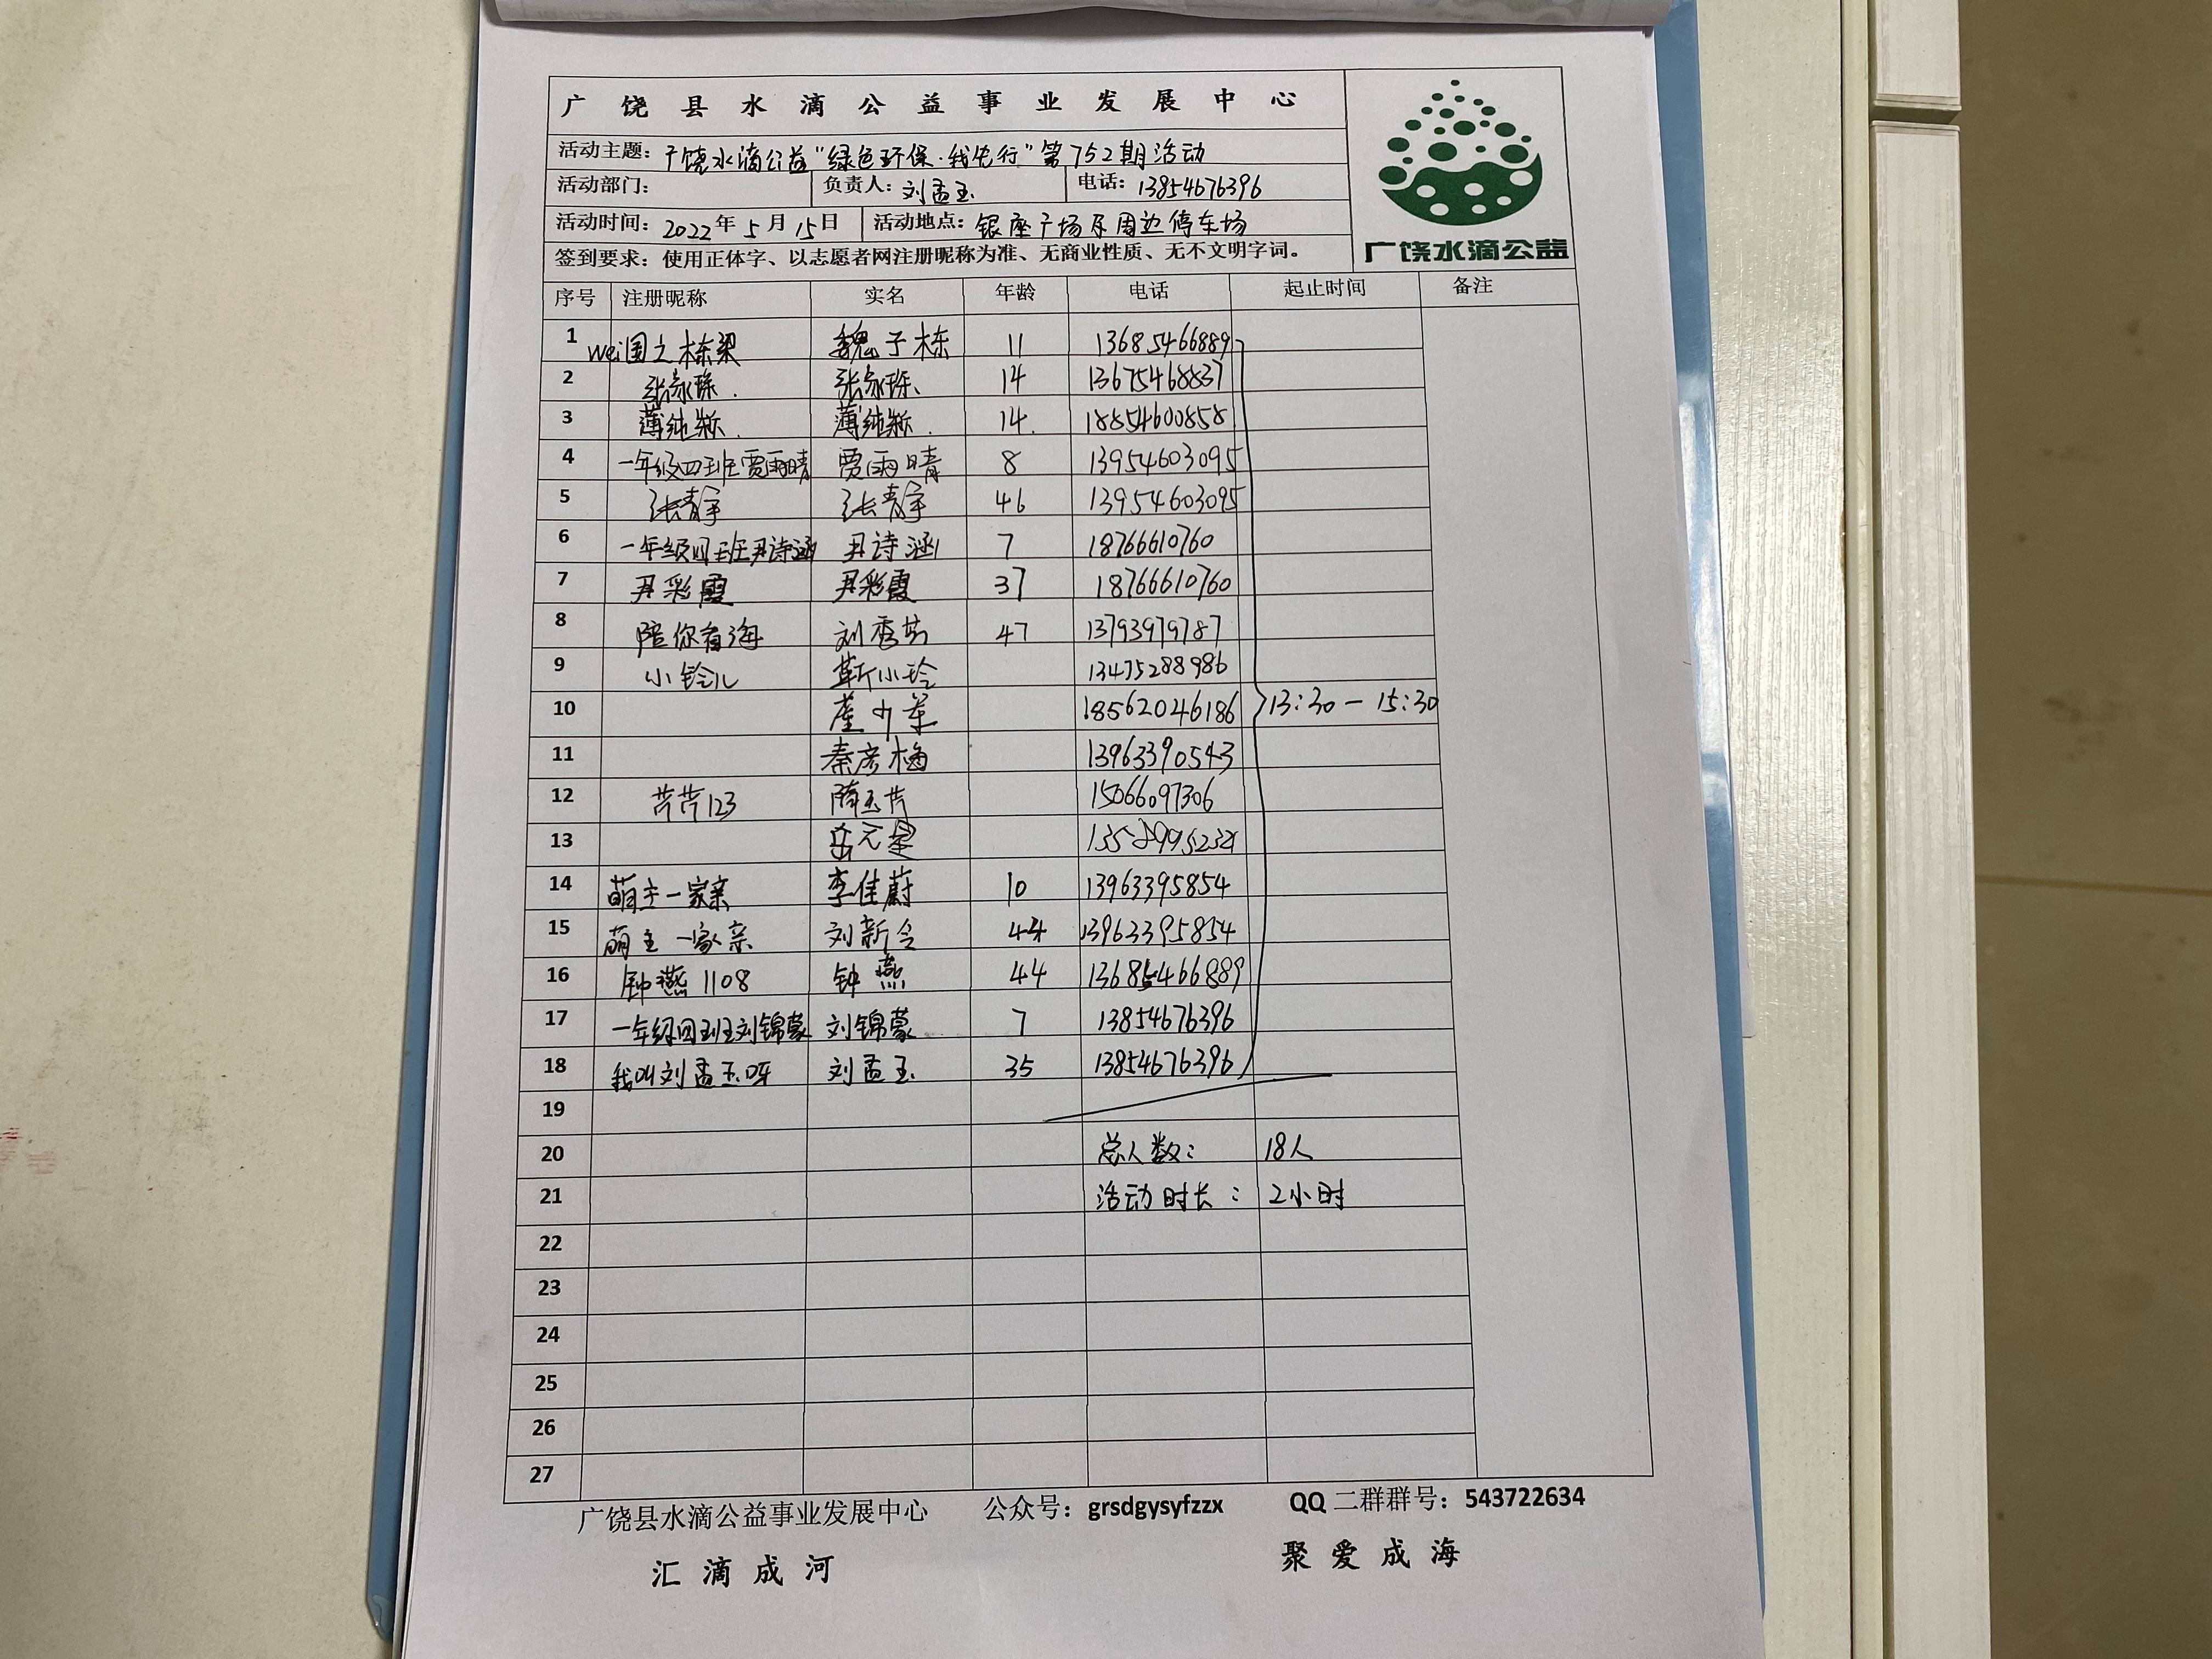 广饶县水滴公益事业发展中心
活动主题：广饶水滴公益"绿色环保·我先行"第752期活动
活动部门： 负责人：刘孟玉 电话：13854676396
活动时间：2022年5月15日 活动地点：银座广场及周边停车场
签到要求：使用正体字、以志愿者网注册昵称为准、无商业性质、无不文明字词。
广饶水滴公益
序号 注册昵称 实名 年龄 电话 起止时间 备注
1 wei国之栋梁 魏子栋 11 13685466889
2 张家琛. 张家琛、 14 13675468837
3 薄纯 薄纯 14. 18854600858
4 一年级四班贾雨晴 贾雨晴 8 13954603095
5 张静 张静 46 13954603095
6 一年级四班尹诗涵 尹诗涵 7 18766610760
7 尹彩霞 尹彩霞 37 18766610760
8 陪你看海 刘秀芳 47 13793979787
9 小铃儿 靳小玲 13475288986
10 18562046186 13:30—15:30
11 秦彦梅 13963390543
12 芹芹123 隋玉芹 15066097306
13
14 萌主一家亲 李佳蔚 10 13963395854
15 萌主一家亲 刘新令 44 13963395854
16 钟燕1108 钟燕 44 13685466889
17 一年级四班刘锦蒙 刘锦蒙 7 13854676396
18 我叫刘孟玉呀 刘孟玉 35 13854676396
19
20 总人数： 18人
21 活动时长： 2小时
22
23
24
25
26
27
广饶县水滴公益事业发展中心 公众号：grsdgysyfzzx QQ二群群号：543722634
汇滴成河 聚爱成海